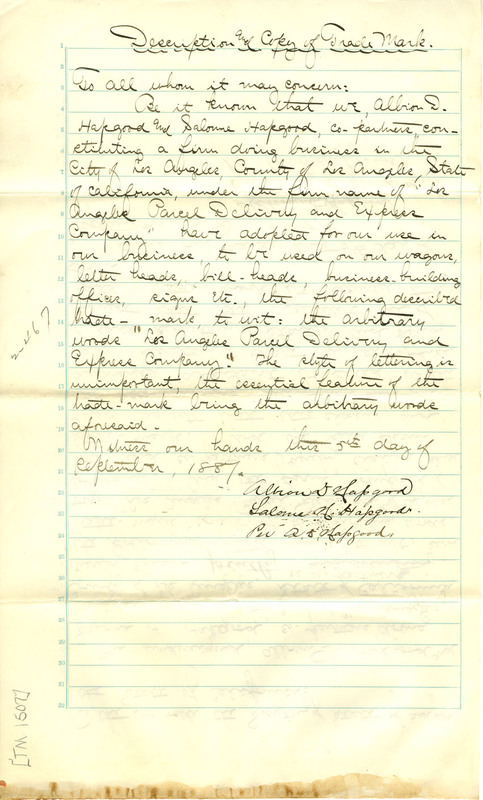 Description and Copy of Trade Mark.
To all whom it may concern:
Be it known that we, Albion D.
Hapgood and Salome Hapgood, co-partners, con-
stituting a firm doing business in the
City of Los Angeles, County of Los Angeles, State
of California, under the firm name of "Los
Angeles Parcel Delivery and Express
Company" have adopted for our use in
our business, to be used on our wagons,
letter heads, bill-heads, business-building
offices, signs etc., the following described
trade-mark, to wit: the arbitrary
words "Los Angeles Parcel Delivery and
Express Company." The style of lettering is
unimportant, the essential feature of the
trade-mark being the arbitrary words
aforesaid.
Witness our hands this 5th day of
September, 1887.
Albion D Hapgood
Salome H. Hapgood.
Per A D Hapgood.
[TM 1507]